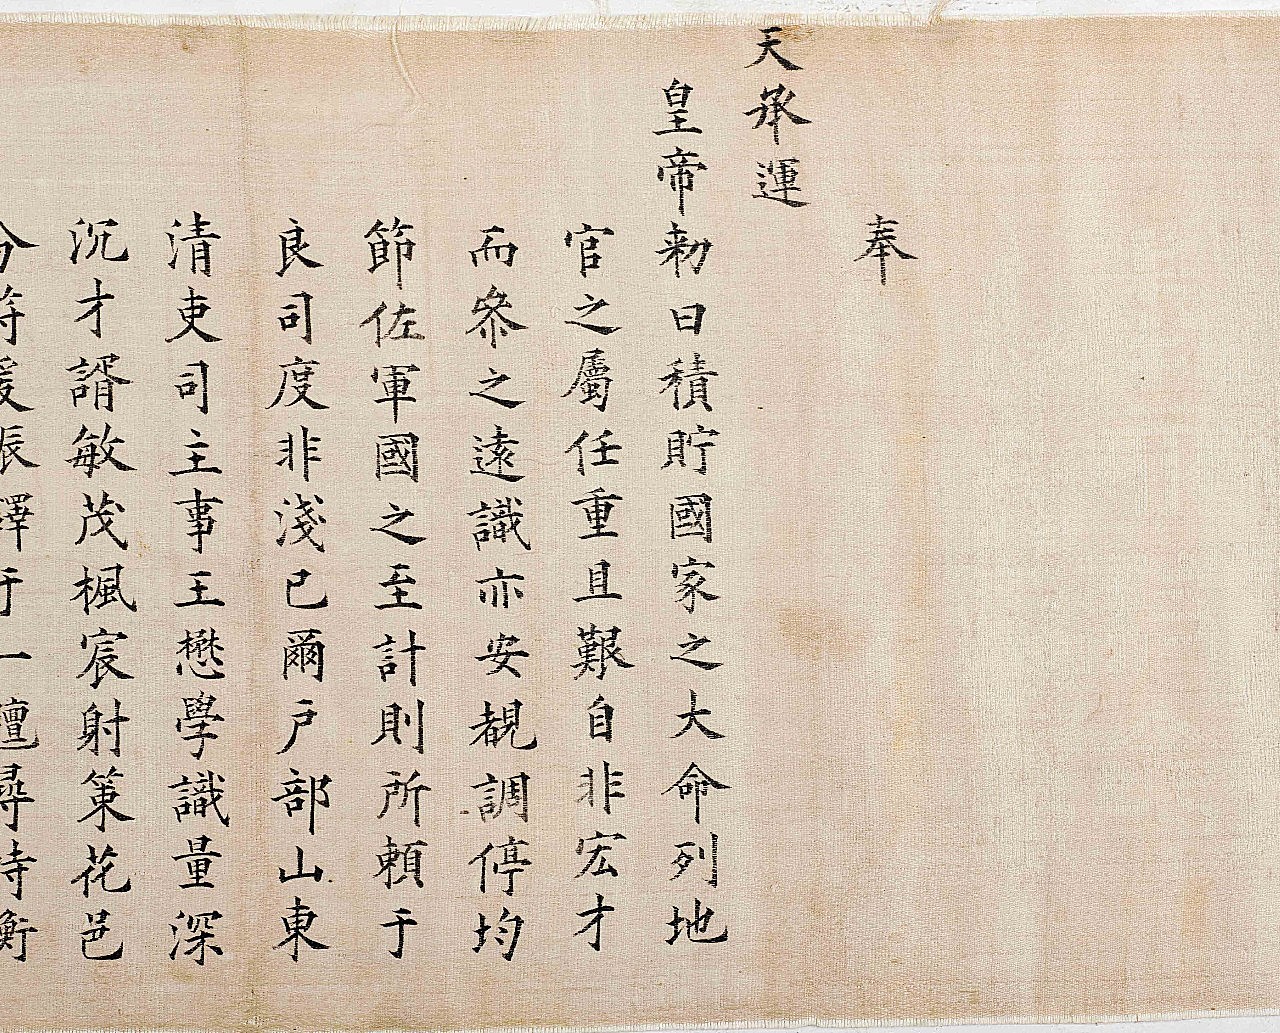 奉
天承運
皇帝勅曰積貯國家之大命列地
官之屬任重且艱自非宏才
而叅之遠識亦安覩調停均
節佐軍國之至計則所賴于
良司度非淺已爾戶部山東
清吏司主事王懋學識量深
沉才諝敏茂楓宸射策花邑
分符